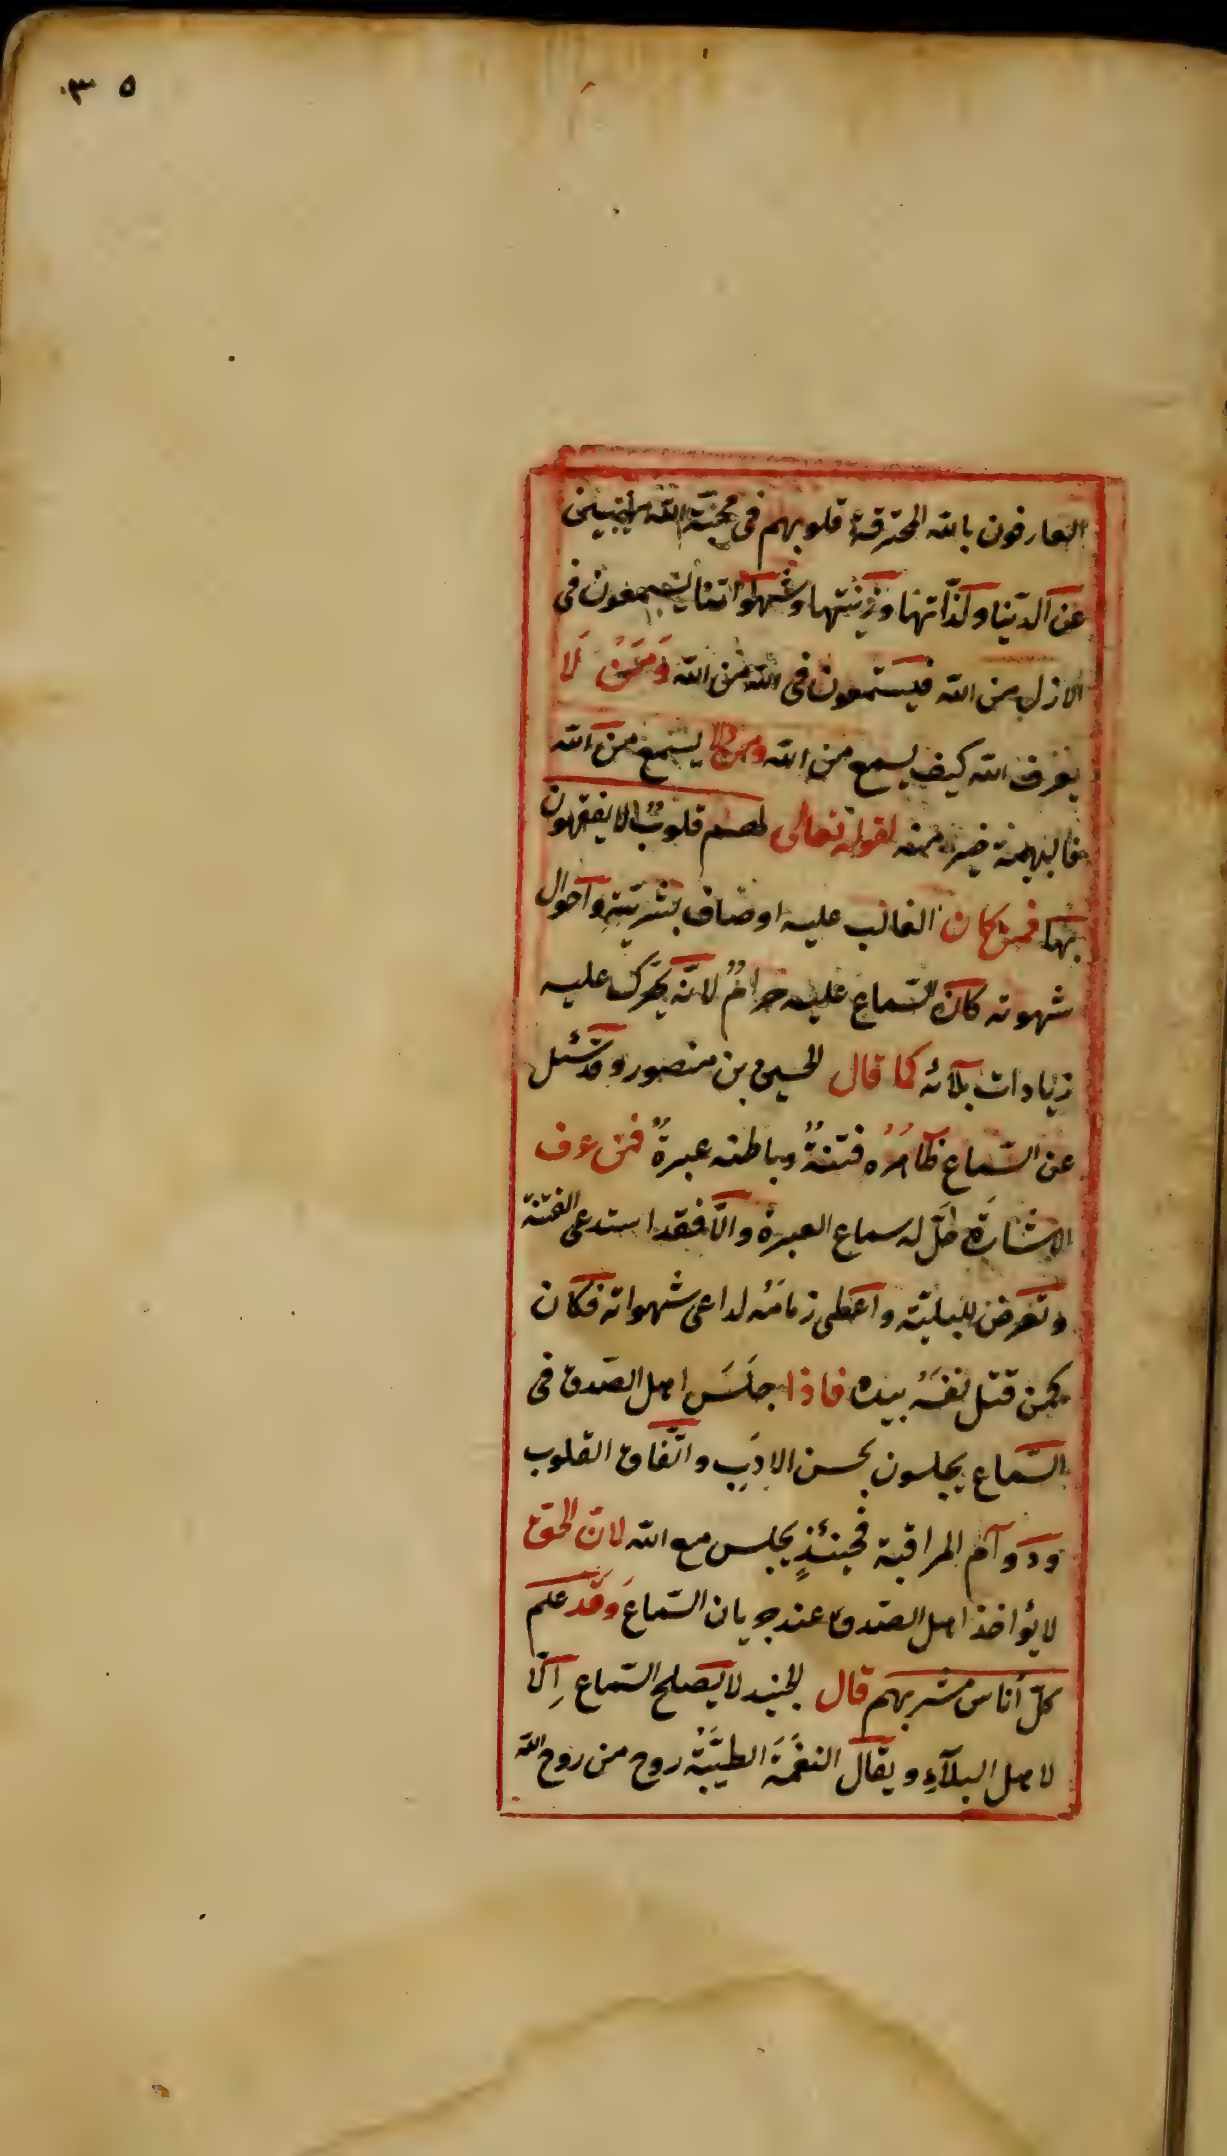 ٣٥
العارفون بالله المحترقة قلوبهم فى محبّة الله
عن الدّنيا ولذّاتها وزينتها وشهواتها يسمعون فى
الازل من الله فيستمعون فى الله من الله وَمَنْ لَا
يعرف الله كيف يسمع من الله ومن لا يسمع من الله
فالبهيمة خير منه لقوله تعالى لهم قلوبٌ لا يفقهون
بها فمن كان الغالب عليه اوصاف بشريّتهِ واحوال
شهوته كان السّماع عليه حرامٌ لانّه يحّرك عليه
زيادات بلآئه كما قال الحسين بن منصور وقد سُئل
عن السّماع ظآهرُه فتنةٌ وباطنه عبرةٌ فمن عرف
الاشارة حَلّ له سماع العبرة والّا فقد استدعى الفتنة
وتعرض للبليّة واعطى زمامَه لداعى شهواته فكان
كمن قتل نفسَهُ بيده فاذا جلَسَ اهل الصّدق فى
السّماع يجلسون بحسن الادَبِ واتّفاق القلوب
ودوآم المراقبة فحينئذٍ يجلس مع الله لانّ الحق
لا يؤاخذ اهل الصّدق عند جريان السّماع وَقَد علم
كلّ أناس مشربهم قال الجنيد لا يصلح السّماع اِلّا
لاهل البلآءِ ويقال النغَمَة الطيّبَة روح من روح الله